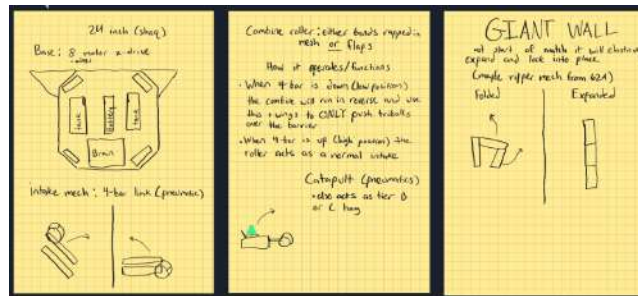 24 inch (shaq)
Base: 8 motor x-drive
+wings
tank
Battery
tank
Brain
Intake mech: 4-bar link (pneumatics)
Combine roller: either bands rapped in
mesh or flaps
How it operates/functions
• When 4-bar is down (low position)
the combine will run in reverse and use
this + wings to ONLY push triballs
over the barrier
• When 4-bar is up (high position) the
roller acts as a normal intake
Catapult (pneumatics)
• also acts as tier B
or C hang
GIANT WALL
at start of match it will
expand and lock into place
mesh from
Folded
Expanded